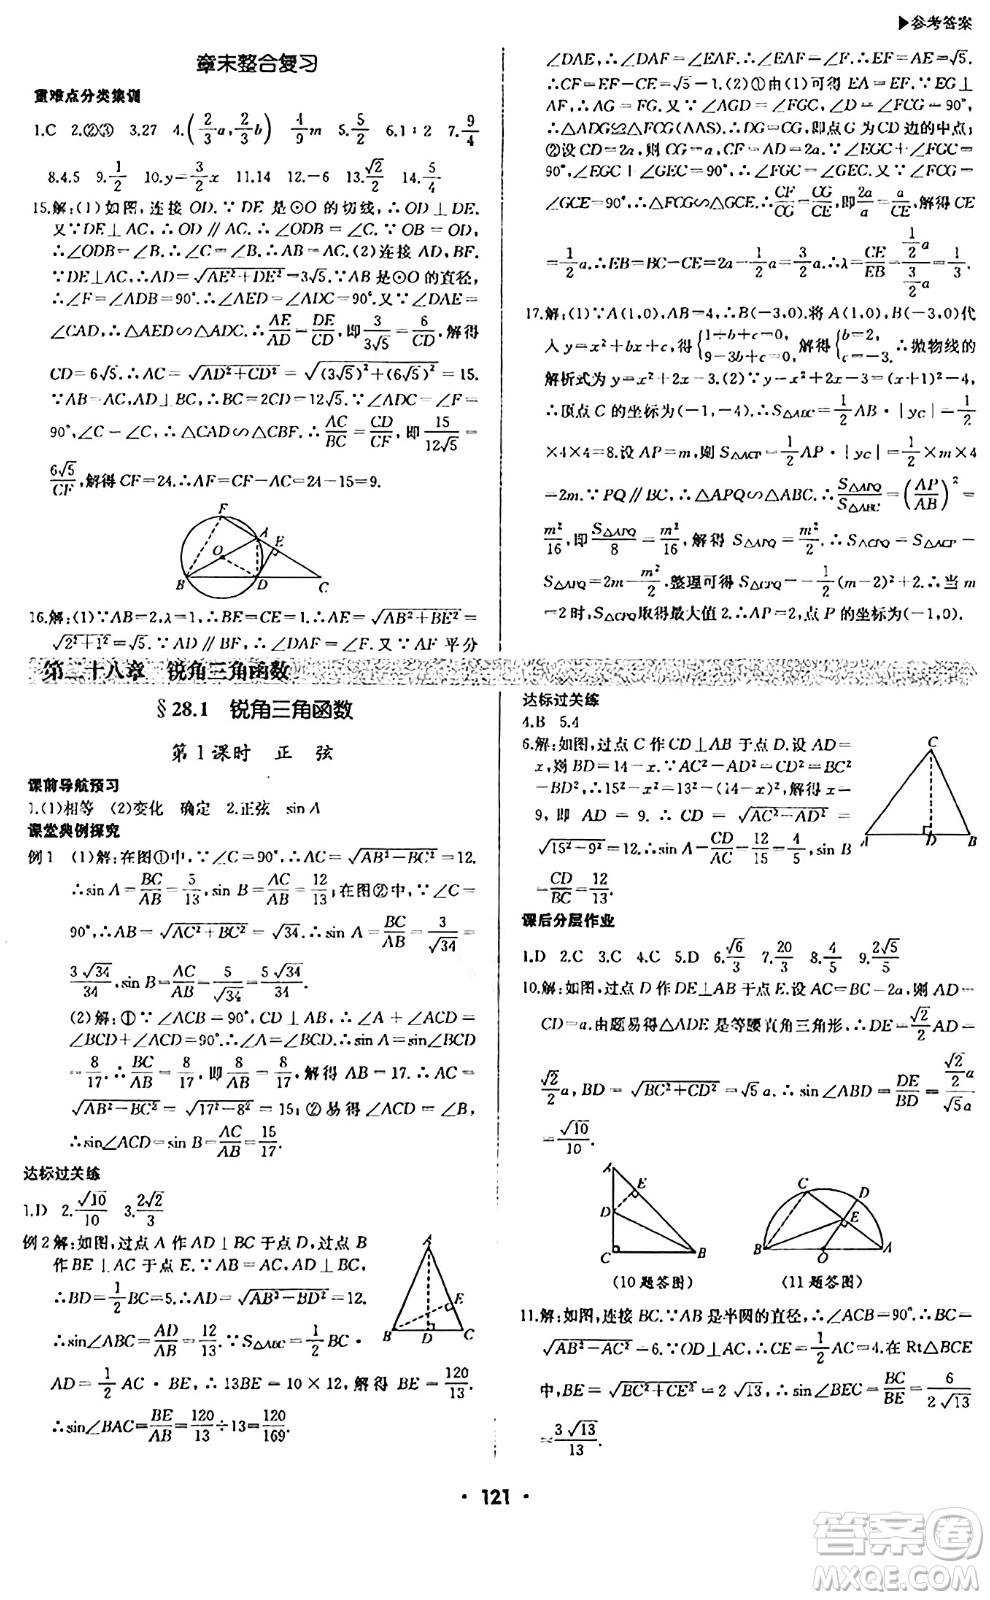 ▶参考答案
章末整合复习
重难点分类集训
1.C 2.②③ 3.27 4.(2/3 a, 2/3 b) 4/9 m 5.5/2 6.1∶2 7.9/4
8.4.5 9.1/2 10.y=1/2 x 11.14 12.-6 13.√2/2 14.5/4
15.解:(1)如图,连接 OD.∵DE 是⊙O 的切线,∴OD⊥DE.
又∵DE⊥AC,∴OD∥AC.∴∠ODB=∠C.∵OB=OD,
∴∠ODB=∠B.∴∠B=∠C.∴AB=AC.(2)连接 AD,BF.
∵DE⊥AC,∴AD=√(AE²+DE²)=3√5.∵AB 是⊙O 的直径,
∴∠F=∠ADB=90°.∴∠AED=∠ADC.又∵∠DAE=
∠CAD,∴△AED∽△ADC.∴AE/AD=DE/CD,即3/(3√5)=6/CD,解得
CD=6√5.∴AC=√(AD²+CD²)=√((3√5)²+(6√5)²)=
15.∵AB=AC,∠ADB=90°,∴BC=2CD=12√5.∵∠F=
90°,∠C=∠C,∴△CAD∽△CBF.∴AC/BC=CD/CF,即15/(12√5)=
6√5/CF,解得 CF=24.∴AF=CF-AC=24-15=9.
F A E O B D C
16.解:(1)∵AB=2,λ=1,∴BE=CE=1.∴AE=√(AB²+BE²)=
√(2²+1²)=√5.∵四边形 ABCD 是矩形,∴AD∥BC.∴
∠DAE=∠AEF.又∵AF 平分∠DAE,∴∠DAF=∠EAF.∴∠EAF=∠F.∴EF=AE=√5.
∴CF=EF-CE=√5-1.(2)①由(1)可得 EA=EF.∵EG⊥
AF,∴AG=FG.又∵∠AGD=∠FGC,∠D=∠FCG=90°,
∴△ADG≌△FCG(AAS).∴DG=CG,即点 G 为 CD 边的中点;
②设 CD=2a,则 CG=a.由①可知,CF=DA=2a.∵∠EGC+∠FGC=
90°,∠EGC+∠GEC=90°,∴∠FGC=∠GEC.又∵∠FCG=
∠GCE=90°,∴△FCG∽△GCE.∴CF/CG=CG/CE,即2a/a=a/CE,解得 CE
=1/2 a.∴EB=BC-CE=2a-1/2 a=3/2 a.∴λ=CE/EB=(1/2 a)/(3/2 a)=1/3.
17.解:(1)∵A(1,0),AB=4,∴B(-3,0).将 A(1,0),B(-3,0)代
入 y=x²+bx+c,得{1+b+c=0, 9-3b+c=0,解得{b=2, c=-3.∴抛物线的
解析式为 y=x²+2x-3.(2)∵y=x²+2x-3=(x+1)²-4,
∴顶点 C 的坐标为(-1,-4).∴S△ABC=1/2 AB·|yC|=1/2
×4×4=8.设 AP=m,则 S△ACP=1/2 AP·|yC|=1/2×m×4
=2m.∵PQ∥BC,∴△APQ∽△ABC.∴S△APQ/S△ABC=(AP/AB)²=
m²/16,即S△APQ/8=m²/16,解得 S△APQ=m²/2.∴S△CPQ=S△ACP-
S△APQ=2m-m²/2,整理可得 S△CPQ=-1/2(m-2)²+2.∴当 m
=2时,S△CPQ取得最大值2.∴AP=2,点 P 的坐标为(-1,0).
第二十八章 锐角三角函数
§28.1 锐角三角函数
第1课时 正 弦
课前导航预习
1.(1)相等 (2)变化 确定 2.正弦 sin A
课堂典例探究
例1 (1)解:在图①中,∵∠C=90°,∴AC=√(AB²-BC²)=12.
∴sin A=BC/AB=5/13,sin B=AC/AB=12/13;在图②中,∵∠C=
90°,∴AB=√(AC²+BC²)=√34.∴sin A=BC/AB=3/√34=
3√34/34,sin B=AC/AB=5/√34=5√34/34.
(2)解:①∵∠ACB=90°,CD⊥AB,∴∠A+∠ACD=
∠BCD+∠ACD=90°.∴∠A=∠BCD.∴sin A=sin∠BCD
=8/17.∴BC/AB=8/17,即8/AB=8/17,解得 AB=17.∴AC=
√(AB²-BC²)=√(17²-8²)=15;②易得∠ACD=∠B,
∴sin∠ACD=sin B=AC/AB=15/17.
达标过关练
1.D 2.√10/10 3.2√2/3
例2 解:如图,过点 A 作 AD⊥BC 于点 D,过点 B
作 BE⊥AC 于点 E.∵AB=AC,AD⊥BC,
∴BD=1/2 BC=5.∴AD=√(AB²-BD²)=12.
∴sin∠ABC=AD/AB=12/13.∵S△ABC=1/2 BC·
AD=1/2 AC·BE,∴13BE=10×12,解得 BE=120/13.
∴sin∠BAC=BE/AB=120/13÷13=120/169.
A E B D C
达标过关练
4.B 5.4
6.解:如图,过点 C 作 CD⊥AB 于点 D.设 AD=
x,则 BD=14-x.∵AC²-AD²=CD²=BC²-
BD²,∴15²-x²=13²-(14-x)².解得 x=
9,即 AD=9.∴CD=√(AC²-AD²)=
√(15²-9²)=12.∴sin A=CD/AC=12/15=4/5,sin B
=CD/BC=12/13.
C A D B
课后分层作业
1.D 2.C 3.C 4.C 5.D 6.√6/3 7.20/3 8.4/5 9.2√5/5
10.解:如图,过点 D 作 DE⊥AB 于点 E.设 AC=BC=2a,则 AD=
CD=a.由题易得△ADE 是等腰直角三角形,∴DE=√2/2 AD=
√2/2 a,BD=√(BC²+CD²)=√5a.∴sin∠ABD=DE/BD=(√2/2 a)/(√5a)
=√10/10.
A E D C B
(10题答图)
C D E B O A
(11题答图)
11.解:如图,连接 BC.∵AB 是半圆的直径,∴∠ACB=90°.∴BC=
√(AB²-AC²)=6.∵OD⊥AC,∴CE=1/2 AC=4.在 Rt△BCE
中,BE=√(BC²+CE²)=2√13.∴sin∠BEC=BC/BE=6/(2√13)
=3√13/13.
· 121 ·
答案圈
MXQE.COM